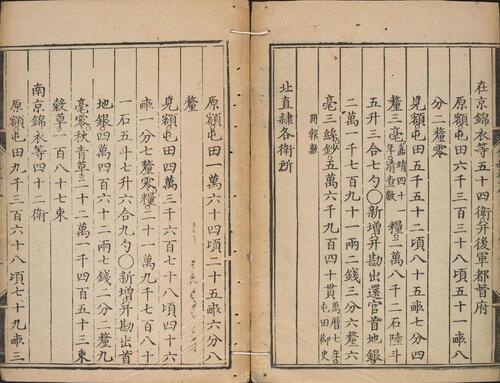 在京錦衣等五十四衛并後軍都督府
原額屯田六千三百三十八頃五十一畝八
分二釐零
見額屯田五千五十二頃八十五畝七分四
釐三毫嘉靖四十一年清查數糧一萬八千二石陸斗
五升三合七勺○新增并勘出還官首地銀
二萬一千七百九十一兩二錢三分六釐六
毫三絲鈔五萬六千九百四十貫萬曆七年屯田御史
冊報數
北直隸各衛所
原額屯田一萬六十四頃二十五畝六分八
釐
見額屯田四萬三千六百七十八頃四十六
畝一分七釐零糧二十一萬九千七百八十
一石五斗七升六合九勺○新增并勘出首
地銀四萬四百六十二兩七錢二分二釐九
毫零秋青草二十二萬一千四百五十三束
穀草一百八十七束
南京錦衣等四十二衛
原額屯田九千三百六十八頃七十九畝三